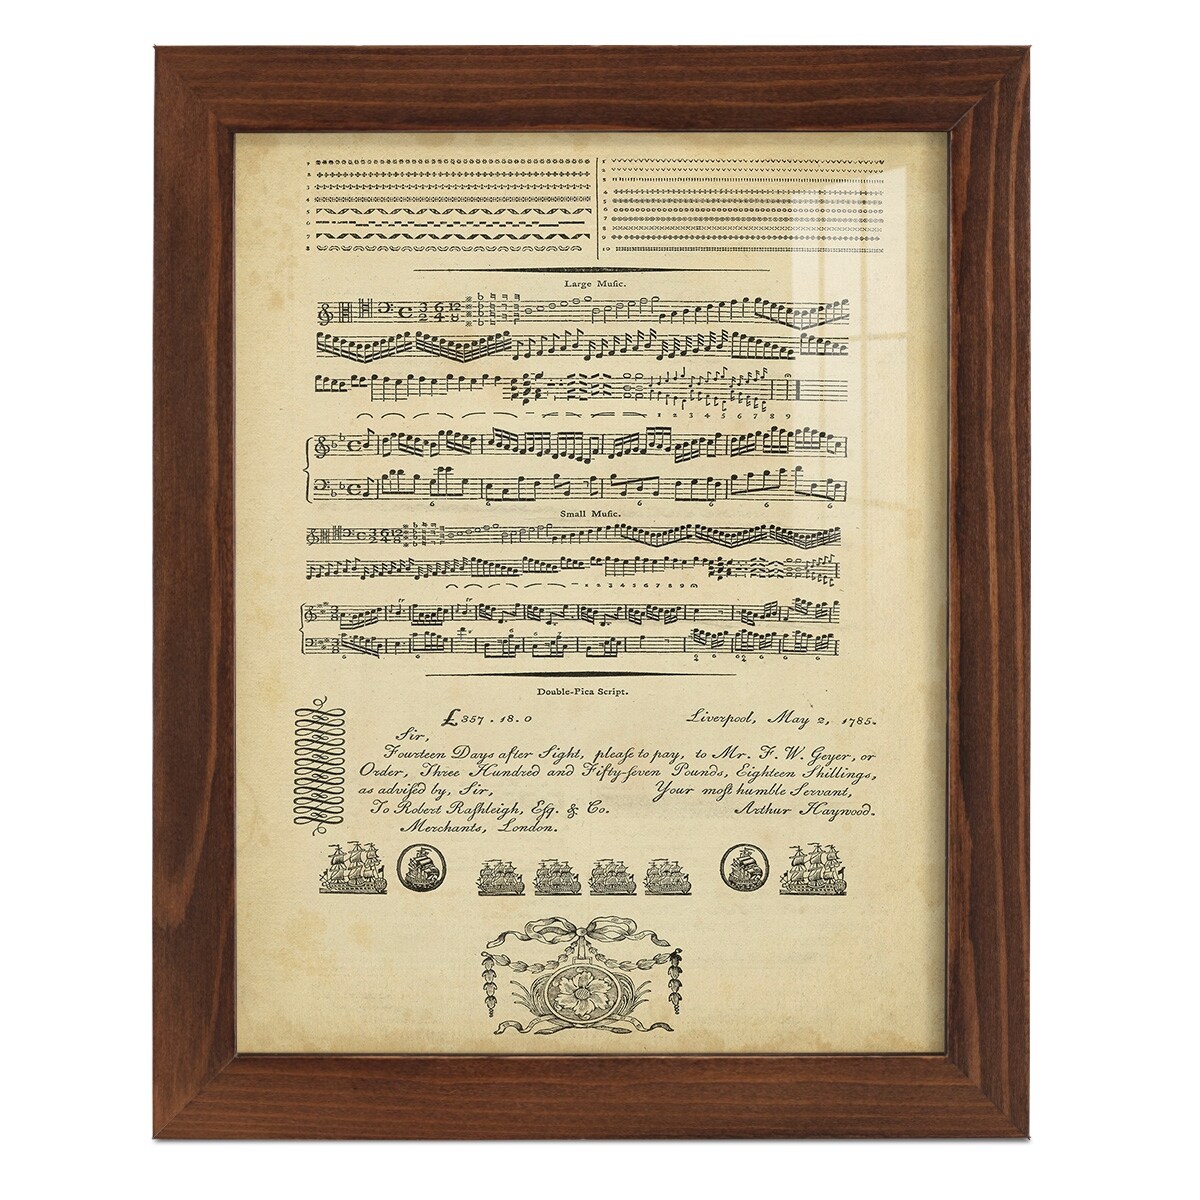 1
2
3
4
5
6
7
8
1
2
3
4
5
6
7
8
9
10
Large Muſic.
1 2 3 4 5 6 7 8 9
Small Muſic.
1 2 3 4 5 6 7 8 9
Double-Pica Script.
£357.18.0 Liverpool, May 2, 1785.
Sir,
Fourteen Days after Sight, pleaſe to pay, to Mr. F. W. Geyer, or
Order, Three Hundred and Fifty-ſeven Pounds, Eighteen Shillings,
as adviſed by, Sir, Your moſt humble Servant,
To Robert Raſhleigh, Eſq. & Co. Arthur Haywood.
Merchants, London.